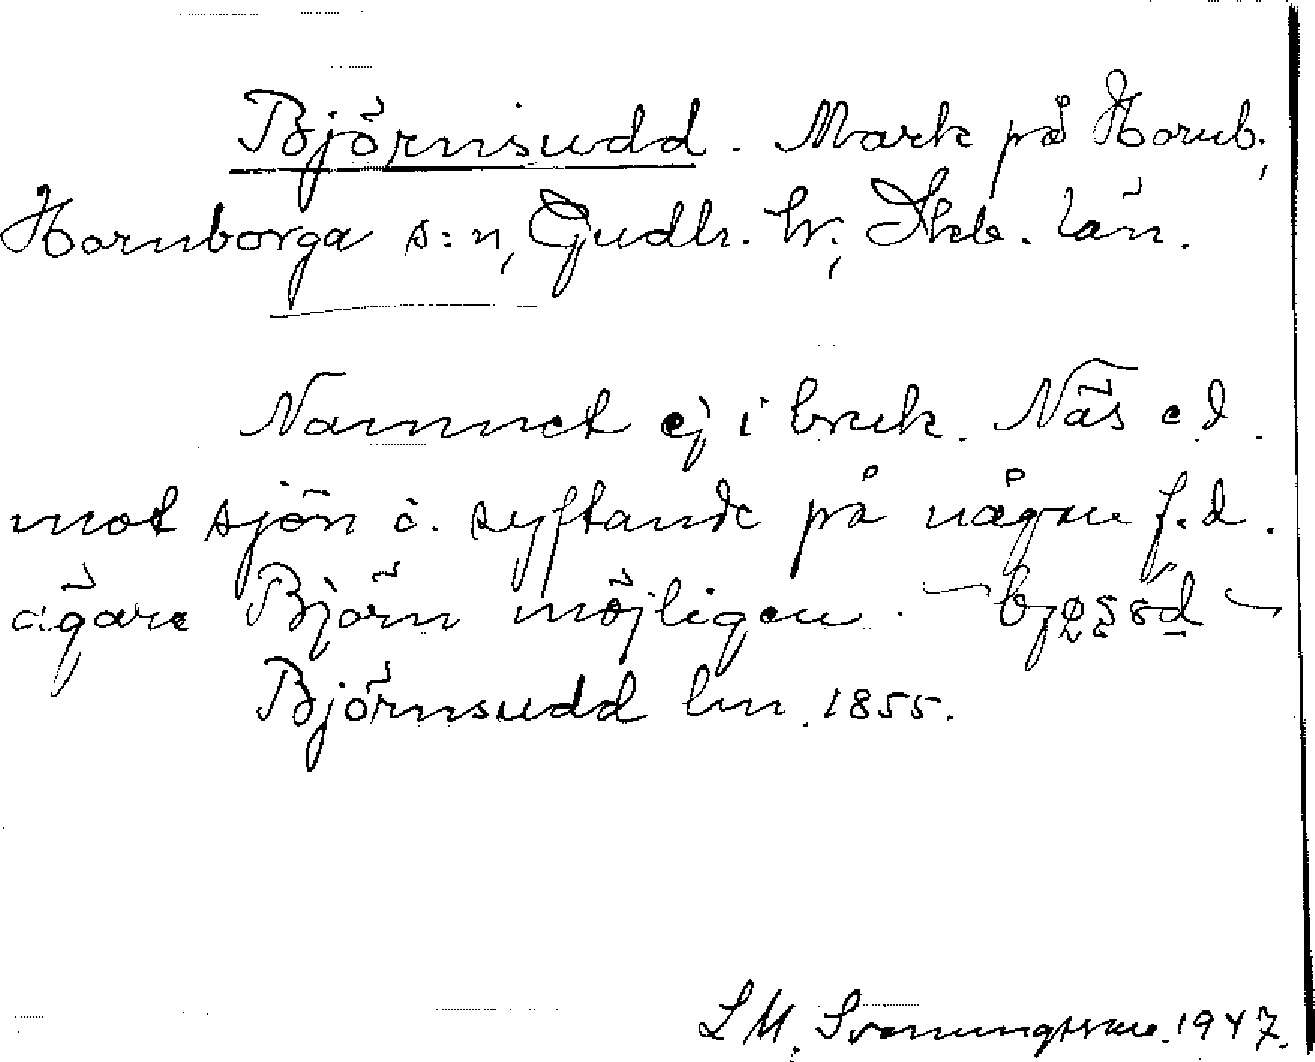 Björnsudd. Mark på Hornb.,
Hornborga s:n, Gudh. hr., Skb. län.
Namnet ej i bruk. Näs ed.
mot sjön o. syftande på någon f.d.
ägare Björn möjligen.
Björnsudd lm. 1855.
L M. Svanungsson. 1947.